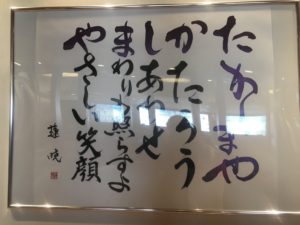 たかしまや
かたろう
しあわせ
まわりも照らすよ
やさしい笑顔
蓮暁